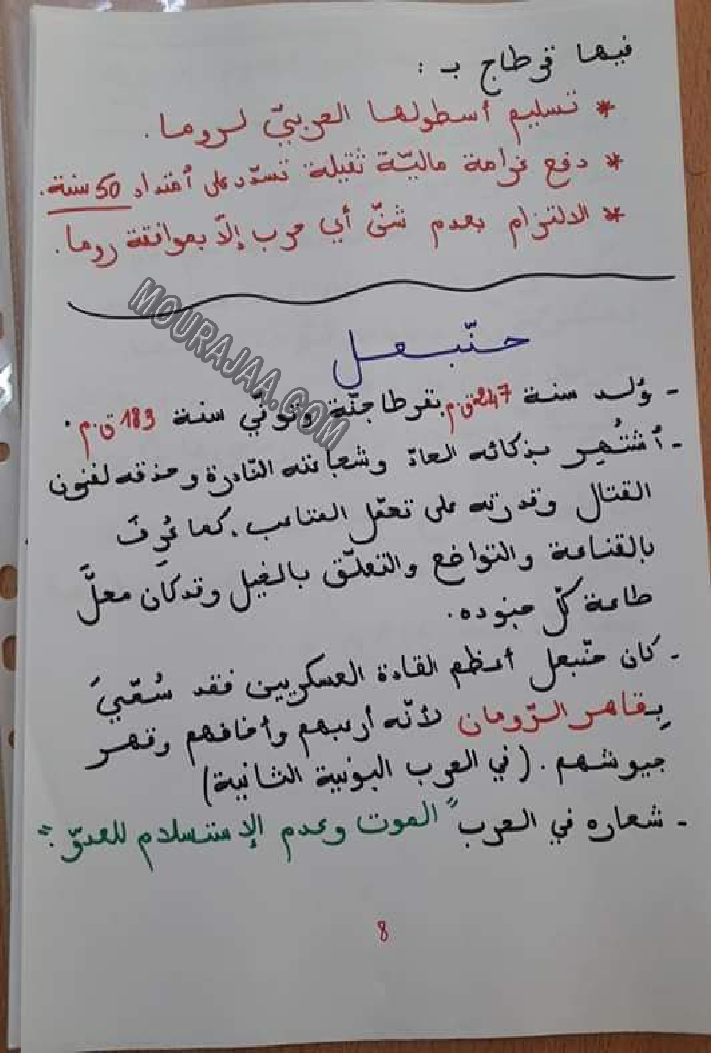 فيها قرطاج بـ :
* تسليم أسطولها الحربيّ لروما.
* دفع غرامة ماليّة ثقيلة تسدّد على أمتداد 50 سنة.
* الالتزام بعدم شنّ أي حرب إلاّ بموافقة روما.
MOURAJAA.COM
حنّبعل
- وُلد سنة 247 ق.م بقرطاجنّة وتوفّي سنة 183 ق.م.
- أشتُهِر بذكائه الحادّ وشجاعته النّادرة وحذقه لفنون
القتال وقدرته على تحمّل المتاعب. كما عُرِفَ
بالقناعة والتواضع والتعلّق بالخيل وقد كان محلَّ
طاعة كلّ جنوده.
- كان حنّبعل أعظم القادة العسكريين فقد سُمّيَ
بِقاهر الرّومان لأنّه أرعبهم وأخافهم وقهر
جيوشهم. (في الحرب البونية الثانية)
- شعاره في الحرب "الموت وعدم الإستسلام للعدوّ."
8